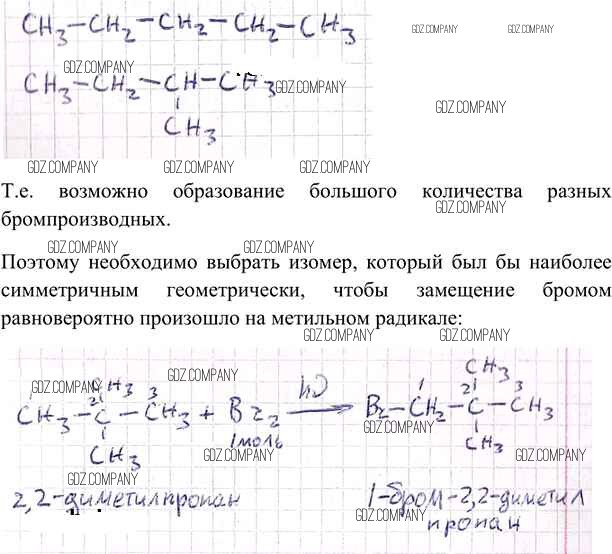 CH₃-CH₂-CH₂-CH₂-CH₃
GDZ.COMPANY GDZ.COMPANY
GDZ.COMPANY
CH₃-CH₂-CH-CH₃
GDZ.COMPANY
GDZ.COMPANY
CH₃
GDZ.COMPANY GDZ.COMPANY GDZ.COMPANY
Т.е. возможно образование большого количества разных
GDZ.COMPANY
бромпроизводных.
GDZ.COMPANY GDZ.COMPANY
Поэтому необходимо выбрать изомер, который был бы наиболее
симметричным геометрически, чтобы замещение бромом
равновероятно произошло на метильном радикале:
GDZ.COMPANY GDZ.COMPANY
GDZ.COMPANY
GDZ.COMPANY
CH₃ hν CH₃
1 2 3 1 2 3
CH₃-C-CH₃ + Br₂ → Br-CH₂-C-CH₃
GDZ.COMPANY
CH₃ 1моль CH₃
GDZ.COMPANY
GDZ.COMPANY
2,2-диметилпропан 1-бром-2,2-диметил
GDZ.COMPANY
пропан